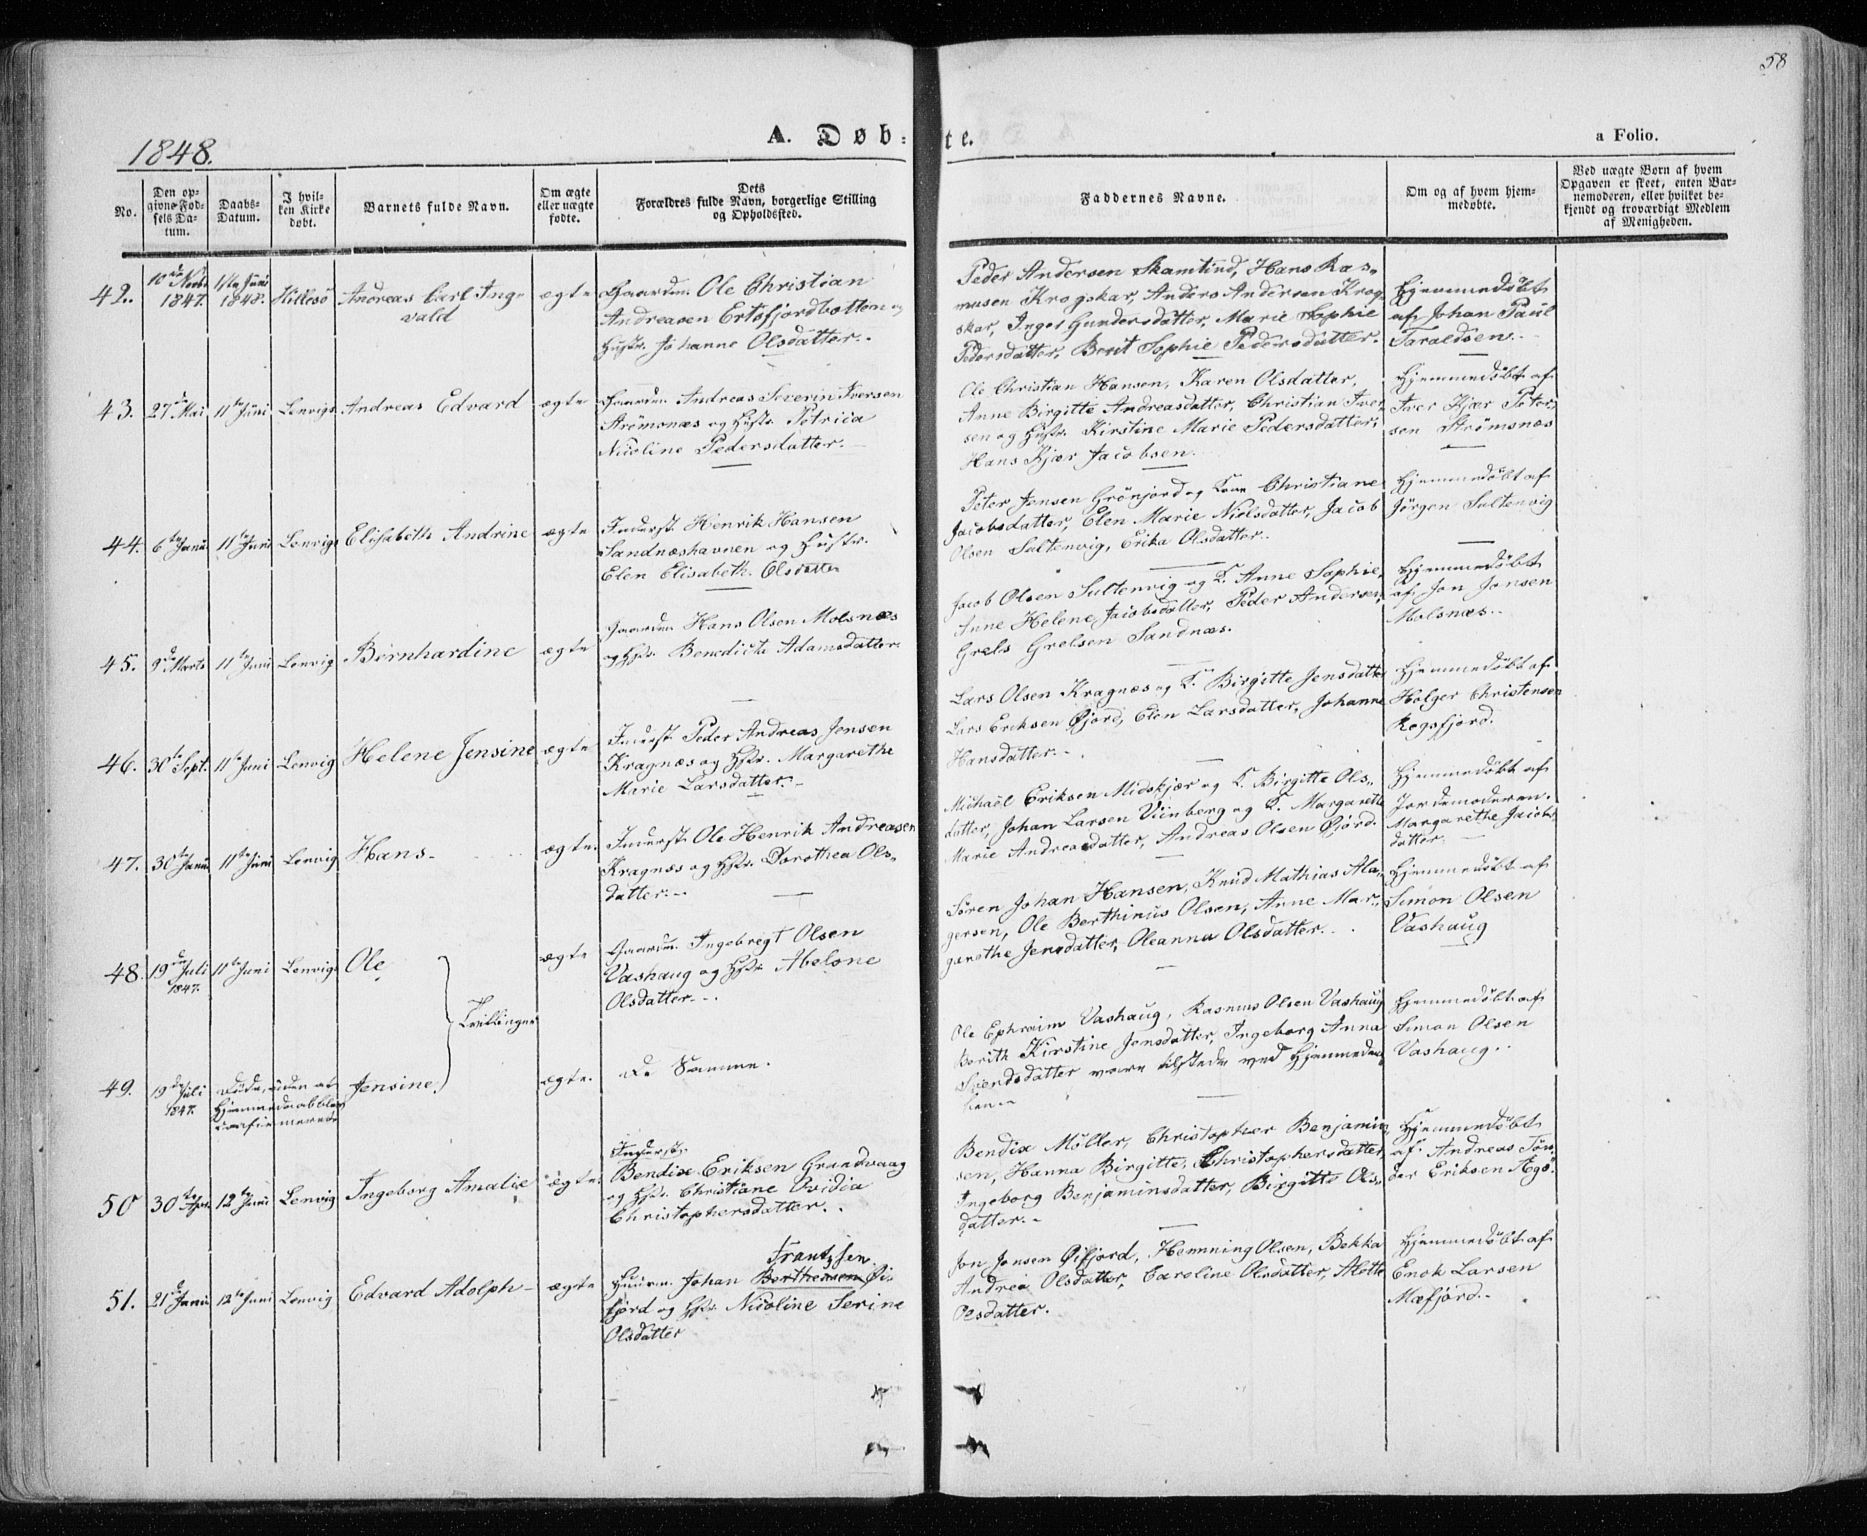 58
1848.
A. Døb-
te.
a Folio.
No.
Den op-
givne Fød-
sels Da-
tum.
Daabs-
Datum.
I hvil-
ken Kirke
døbt.
Barnets fulde Navn.
Om ægte
eller uægte
fødte.
Dets
Forældres fulde Navn, borgerlige Stilling
og Opholdssted.
Faddernes Navne.
Om og af hvem hjem-
medøbte.
Ved uægte Børn af hvem
Opgaven er skeet, enten Bar-
nemoderen, eller hvilket be-
kjendt og troværdigt Medlem
af Menigheden.
42.
10de Novbr
1847.
11te Juni
1848.
Hillesö
Andreas Carl Ing-
vald
ægte
Gaardm. Ole Christian
Andreasen Ertsfjordbotten og
Hustr. Johanne Olsdatter.
Peder Andersen Skamtind, Hans Ras-
musen Krogskar, Anders Andersen Krog-
skar, Inger Gundersdatter, Marie Sophie
Pedersdatter, Berit Sophie Pedersdatter.
Hjemmedöbt
af Johan Paul
Taraldsen.
43.
27de Mai
11te Juni
Lenvigs
Andreas Edvard
ægte
Gaardm. Andreas Severin Iversen
Strömsnæs og Hustr. Petricia
Nicoline Pedersdatter.
Ole Christian Hansen, Karen Olsdatter,
Anne Birgitte Andreasdatter, Christian Iver-
sen og Hustr. Kirstine Marie Pedersdatter,
Hans Kjær Jacobsen.
Hjemmedöbt af
Iver Kjær Peter-
sen Strömsnæs
44.
6te Janu
11te Juni
Lenvigs
Elisabeth Andrine
ægte
Inderst. Henrik Hansen
Sandnæshavnen og Hustr.
Elen Elisabeth Olsdatter
Peter Jensen Grönjord og Kone Christiane
Jacobsdatter, Elen Marie Nielsdatter, Jacob
Olsen Sultenvig, Erika Olsdatter.
Hjemmedöbt af
Jörgen Sultenvig
45.
9de Marts
11te Juni
Lenvig
Bernhardine
ægte
Gaardm. Hans Olsen Molsnæs
og Hstr. Benedicte Adamsdatter.
Jacob Olsen Sultenvig og K. Anne Sophie,
Anne Helene Jacobsdatter, Peder Andersen,
Grels Grelsen Sandnæs.
Hjemmedöbt
af Jon Jonsen
Molsnæs.
46.
30te Sept.
11te Juni
Lenvig
Helene Jensine
ægte
Inderst. Peder Andreas Jensen
Kragnæs og Hstr. Margarethe
Marie Larsdatter.
Lars Olsen Kragnæs og K. Birgitte Jensdatter
Lars Eriksen Gjord, Elen Larsdatter, Johanne
Hansdatter.
Hjemmedöbt af
Holger Christensen
Rogsfjord.
47.
30te Janu
11te Juni
Lenvig
Hans
ægte.
Inderst. Ole Henrik Andreasen
Kragnæs og Hstr. Dorothea Ols-
datter.
Michaël Eriksen Midskjær og K. Birgitte Ols-
datter, Johan Larsen Viinberg og K. Margarethe
Marie Andreasdatter, Andreas Olsen Gjord.
Hjemmedöbt af
Jordemoderen
Margarethe Jacobs
datter.
48.
19de Juli
1847.
11te Juni
Lenvigs
Ole,
ægte
Gaardm. Ingebrigt Olsen
Vashaug og Hstr. Abelone
Olsdatter.
Sören Johan Hansen, Knud Mathias Ala-
gersen, Ole Berthinus Olsen, Anne Mar-
garethe Jensdatter, Oleanna Olsdatter.
Hjemmedöbt af
Simon Olsen
Vashaug
Tvillinger
49.
19de Juli
1847.
Döde, uden at
Hjemmedaab blev
confirmeret
Jensine
ægte.
De Samme.
Ole Ephraim Vashaug, Rasmus Olsen Vashaug
Berith Kirstine Jensdatter, Ingeborg Anna
Svendsdatter vare tilstede ved Hjemmedaa-
ben.
Hjemmedöbt af
Simon Olsen
Vashaug.
50
30te Apr.
12te Juni
Lenvig
Ingeborg Amalie
ægte.
Inderst.
Bendix Eriksen Grundvaag
og Hstr. Christiane Ovidia
Christophersdatter.
Bendix Möller, Christopher Benjamin-
sen, Hanna Birgitte Christophersdatter,
Ingeborg Benjaminsdatter, Birgitte Ols-
datter.
Hjemmedöbt
af Andreas Tön-
der Eriksen Ægö.
51.
21de Janu
12te Juni
Lenvig
Edvard Adolph
ægte
Frantzsen
Huusm. Johan Berthensen Öi-
fjord og Hstr. Nicoline Serine
Olsdatter
Jon Jonsen Öifjord, Hemming Olsen, Bekka
Andrea Olsdatter, Caroline Olsdatter, Alette
Olsdatter.
Hjemmedöbt af
Enok Larsen
Mæfjord.